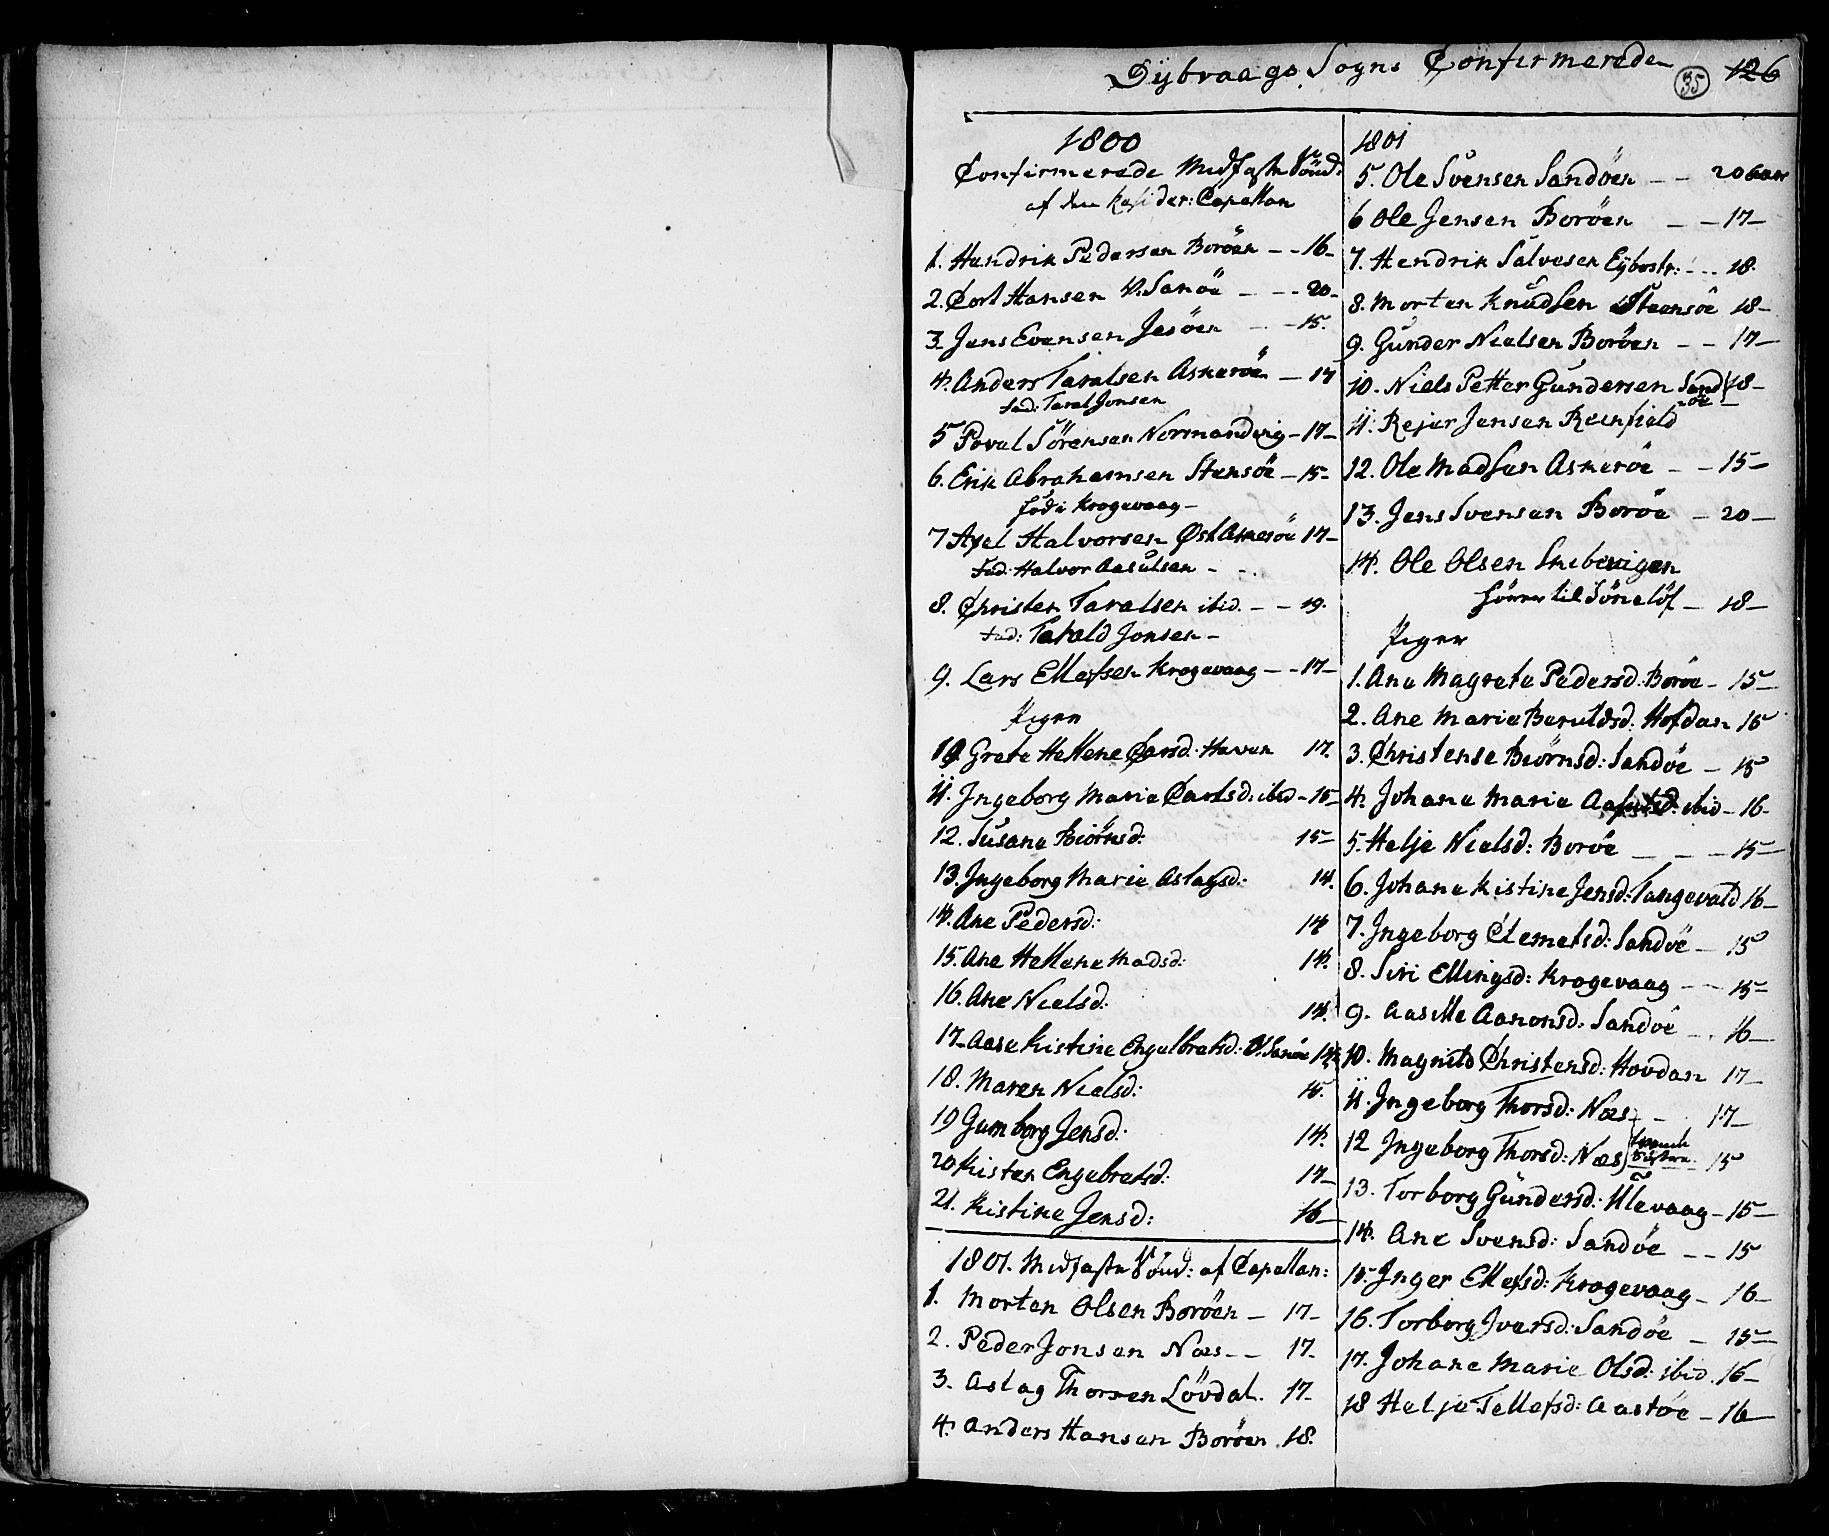 Dÿbvaags Sogns Confirmerede
35 126
1800
Confirmerede Midfaste Sönd:
af den Resider: Capellan
1. Hendrik Pedersen Boröen - - 16-
2. Cort Hansen V. Sanöe - - - 20-
3. Jens Evensen Jesöen - - 15.
4. Anders Taralsen Askeröe - 17
Fad: Taral Jonsen
5 Povel Sörensen Normandvig - 17-
6. Erik Abrahamsen Stensöe - 15-
föd i Krogevaag -
7 Axel Halvorsen Øst Askeröe 17-
Fad: Halvor Aasulsen - -
8. Christen Taralsen ibid. - - 19.
Fad: Tarald Jonsen -
9. Lars Ellefsen Krogevaag - - 17-
Piger
10. Grete Hellene Carsd: Haven 17.
11. Ingeborg Marie Carlsd: ibid - 15-
12. Susane Biörnsd: 15-
13. Ingeborg Marie Aslagsd: 14.
14. Ane Pedersd: 14
15. Ane Hellene Madsd: 14.
16. Ane Nielsd: 14.
17. Aase Kistine Engelbretsd: V. Sanöe 14
18. Maren Nielsd: 15.
19 Gunborg Jensd: 14.
20 Kisten Engebretsd: 17-
21. Kistine Jensd: 16-
1801. Midfaste Sönd: af Capellan:
1. Morten Olsen Boröen - 17-
2. Peder Jonsen Næs - - 17-
3. Aslag Thorsen Lövdal. 17-
4. Anders Hansen Boröen . 18.
1801
5. Ole Svensen Sandöen - - 20 aar
6 Ole Jensen Boröen - - 17-
7. Hendrik Salvesen Eÿbostr: - - 18.
8. Morten Knudsen Steensöe 18-
9. Gunder Nielsen Boröen - - 17-
10. Niels Petter Gundersen Sand 18-
öe
11. Rejer Jensen Reenfield
12. Ole Madsen Askeröe - - 15-
13. Jens Svensen Boröe - 20-
14. Ole Olsen Skibevigen
hörer til Söneløf - 18-
Piger
1. Ane Magrete Pedersd: Boröe - 15-
2. Ane Marie Berulsd: Hofdan 15
3. Christense Biörnsd: Sandöe - 15
4. Johane Marie ibid - 16-
5. Helje Nielsd: Boröe - - - 15-
6. Johane Kistine Jensd: Tangevald 16-
7. Ingeborg Clemetsd: Sandöe - 15
8. Siri Ellingsd: Krogevaag - - 15-
9. Aasille Aanonsd: Sandöe - . 16-
10. Magnild Christensd: Hovdan 17-
11. Ingeborg Thorsd: Næs - - 17-
12 Ingeborg Thorsd: Næs 15
13. Torborg Gundersd: Ulevaag - 15-
14. Ane Svensd: Sandöe - - 15
15. Inger Ellefsd: Krogevaag - 16-
16. Torborg Iversd: Sandöe - 15-
17. Johane Marie Olsd: ibid. 16-
18 Helje Tellefsd: Aastöe - 16-